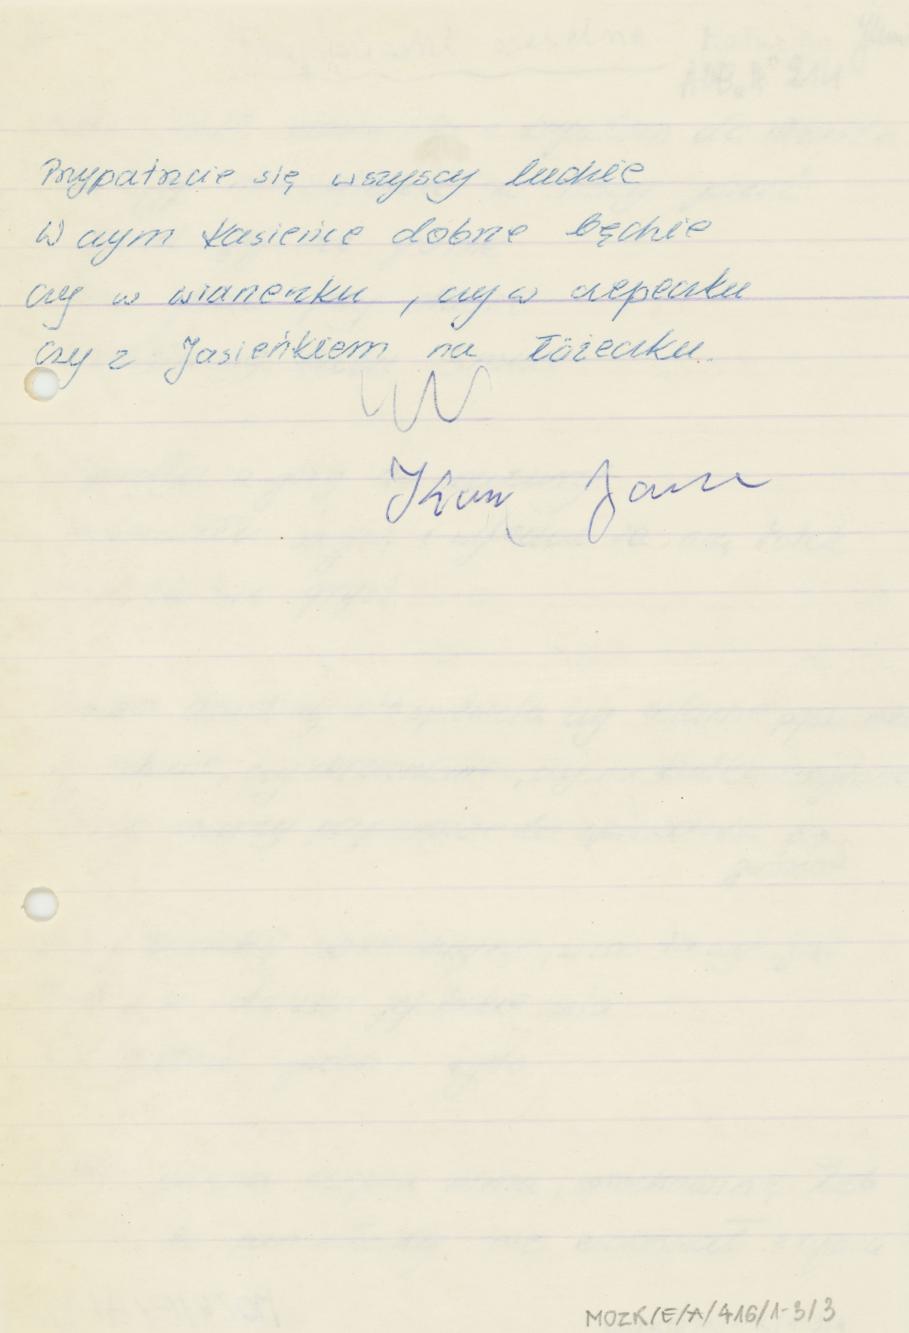 Przypatrzcie się wszyscy ludzie
W czym Kasieńce dobrze będzie
czy w wianeczku, czy w czepeczku
czy z Jasieńkiem na łóżeczku.
MOZK/E/A/416/1-3/3